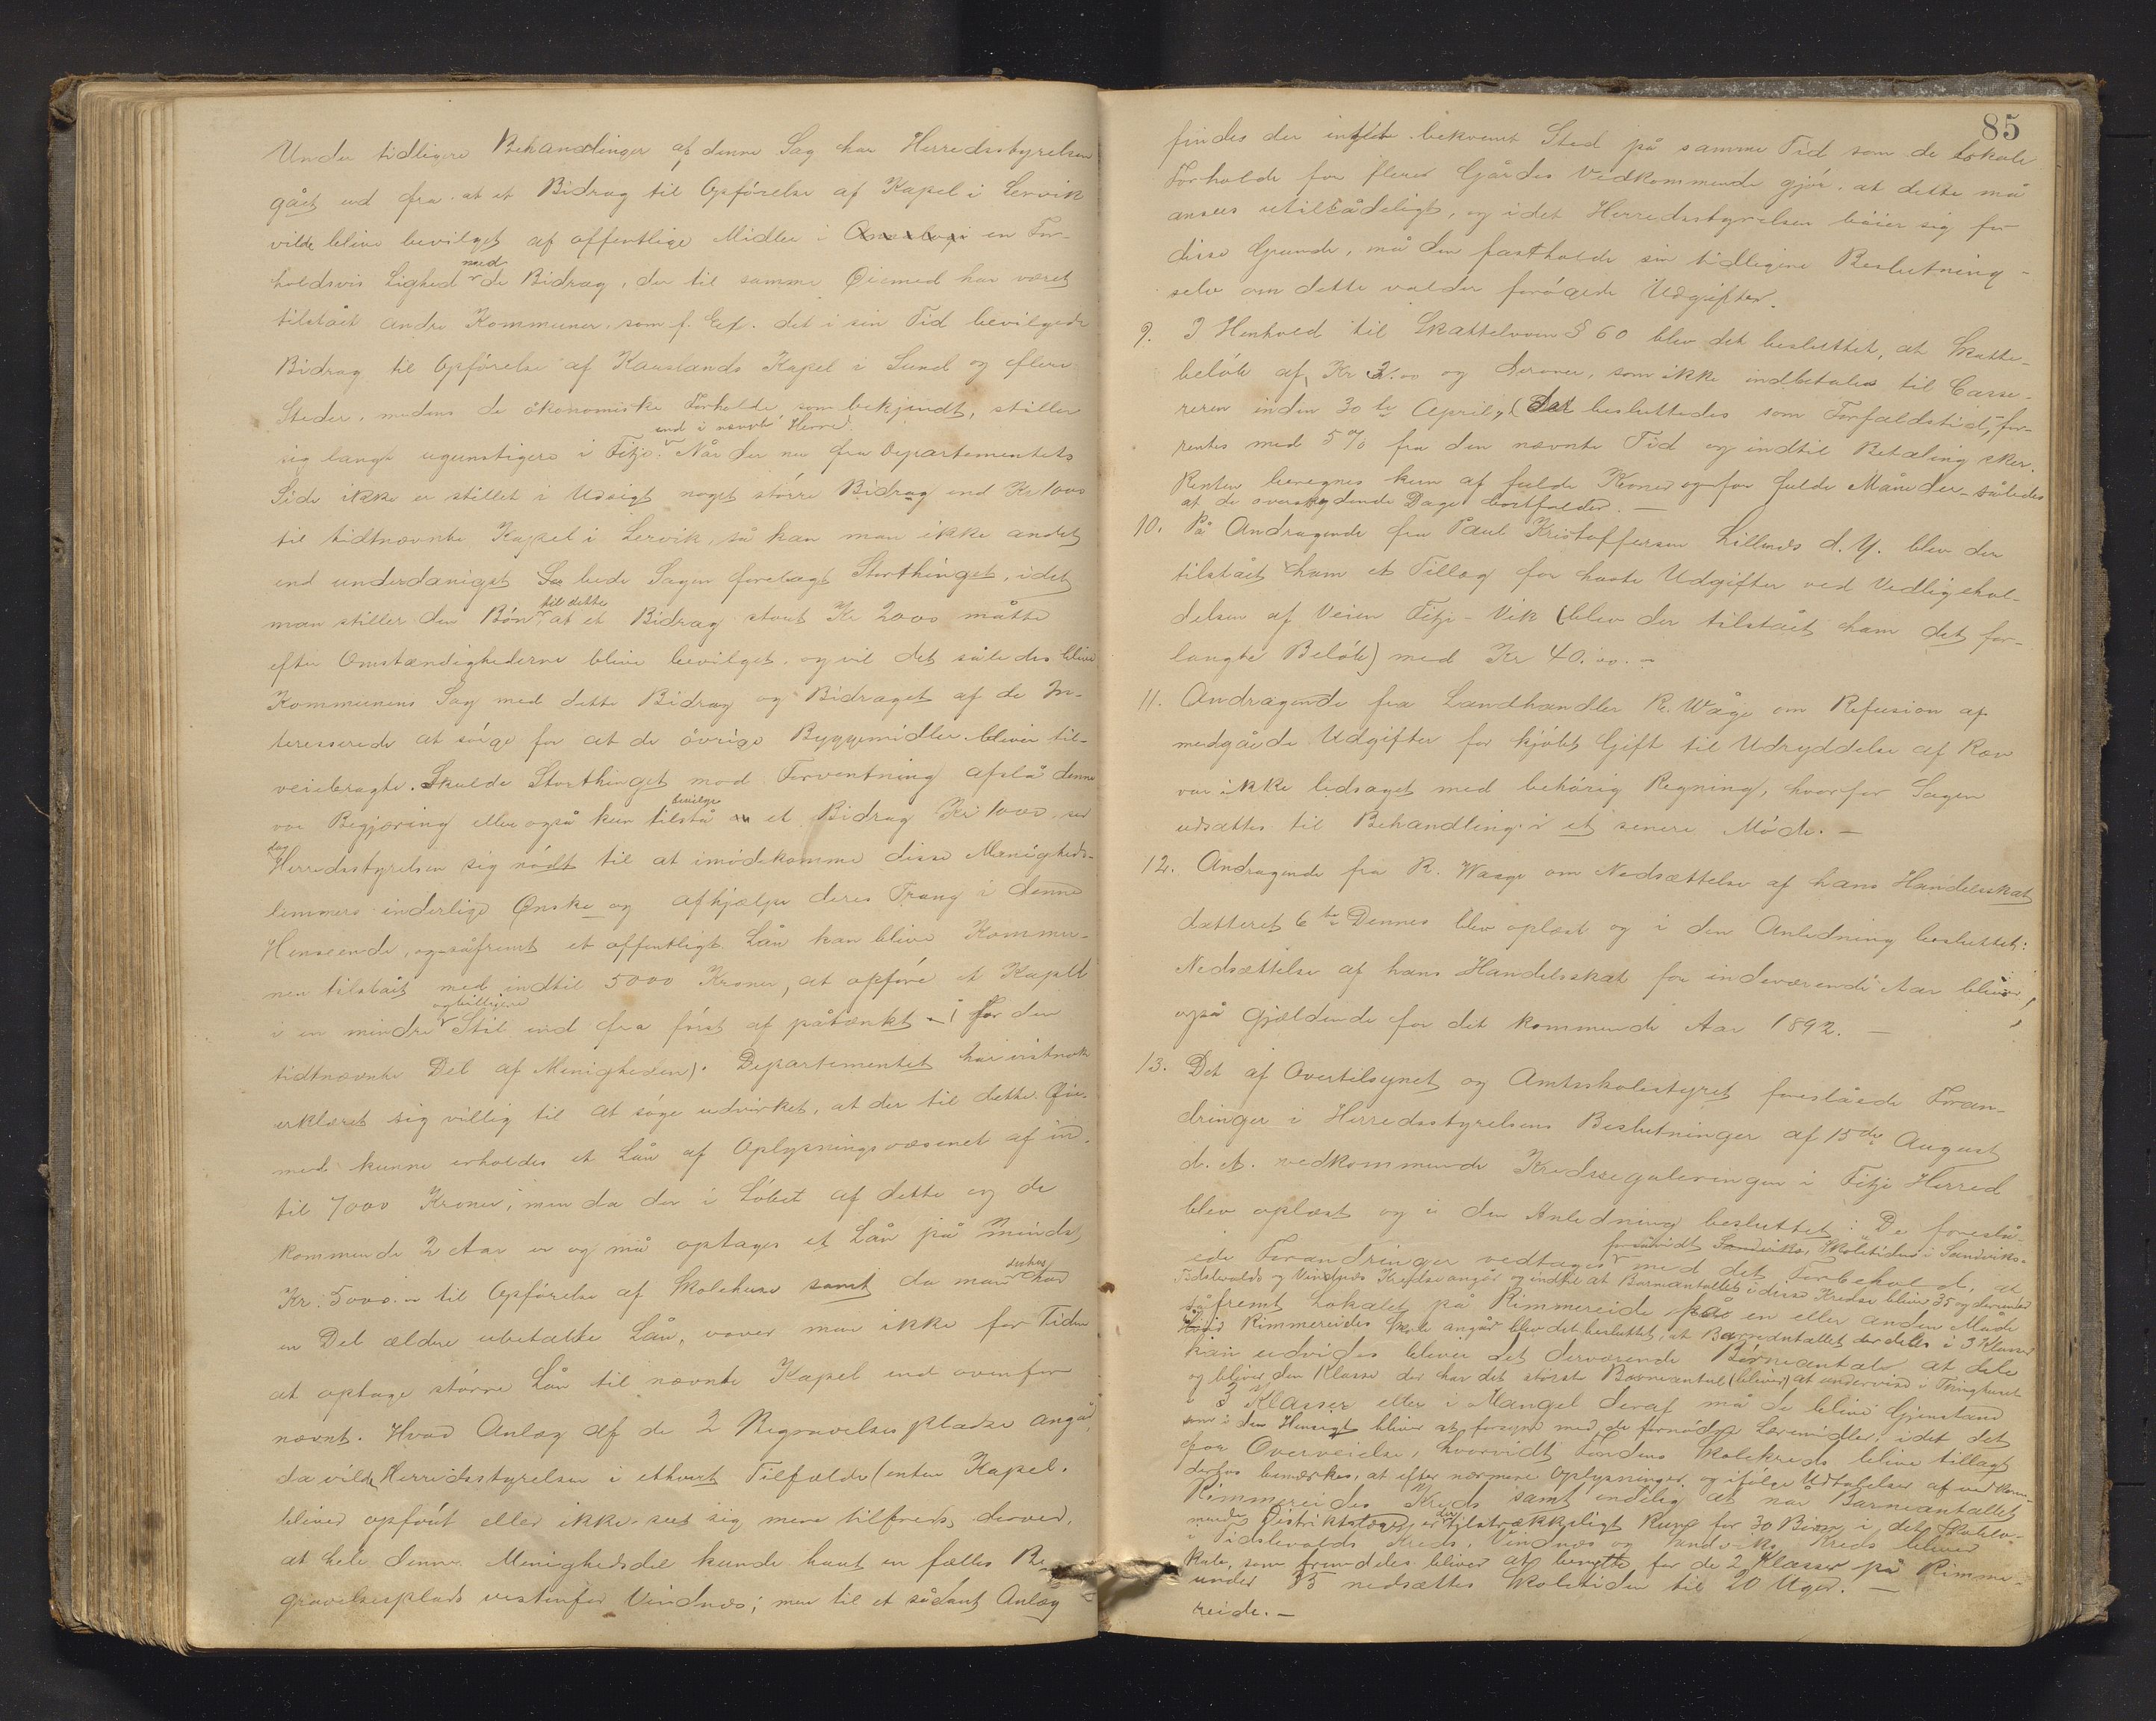 Under tidligere Behandlinger af denne Sag har Herredsstyrelsen
gået ud fra at et Bidrag til Opförelse af Kapel i Lervik
vilde blive bevilget af offentlige Midler i en For-
holdsvis Lighed med de Bidrag, der til samme Öiemed har været
tilstået andre Kommuner, som f. Ex. det i sin Tid bevilgede
Bidrag til Opförelse af Kauslands Kapel i Sund og flere
Steder, medens de ökonomiske Forholde, som bekjendt, stiller
sig langt ugunstigere i Fitje end i nævnte Herred. Når der nu fra Departementets
Side ikke er stillet i Udsigt noget större Bidrag end Kr 1000
til tidtnævnte Kapel i Lervik, så kan man ikke andet
end underdanigst bede Sagen forelagt Storthinget, idet
man stiller den Bön til dette at et Bidrag stort Kr 2000 måtte
efter Omstændighederne blive bevilget, og vil det således blive
Kommunens Sag med dette Bidrag og Bidraget af de In-
teresserede at sörge for at de övrige Byggemidler bliver til-
veiebragte. Skulde Storthinget mod Forventning afslå denne
vor Begjæring eller også kun bevilge et Bidrag Kr 1000, ser
dog Herredsstyrelsen sig nödt til at imödekomme disse Menigheds-
lemmers inderlige Önske og afhjælpe deres Trang i denne
Henseende, og såfremt et offentligt Lån kan blive Kommu-
nen tilstået med indtil 5000 Kroner, at opföre et Kapel
i en mindre og billigere Stil end fra först af påtænkt (for den
tidtnævnte Del af Menigheden). Departementet har vistnok
erklæret sig villig til at söge udvirket, at der til dette Öie-
med kunne erholdes et Lån af Oplysningsvæsenet af ind-
til 7000 Kroner, men da der i Löbet af dette og de
kommende 2 Aar er og må optages et Lån på mindst
Kr. 5000 til Opförelse af Skolehuse samt da man desuden har
en Del ældre ubetalte Lån, vover man ikke for Tiden
at optage större Lån til nævnte Kapel end ovenfor
nævnt. Hvad Anlæg af de 2 Begravelsespladse angår,
da vilde Herredsstyrelsen i ethvert Tilfælde (enten Kapel
bliver opfört eller ikke) seet sig mere tilfreds derved,
at hele denne Menighedsdel kunde havt en fælles Be-
gravelsesplads vestenfor Vindnes; men til et sådant Anlæg
85
findes der intet bekvemt Sted på samme Tid som de lokale
Forholde for flere Gårdes Vedkommende gjör, at dette må
ansees utilrådeligt, og idet Herredsstyrelsen böier sig for
disse Grunde, må den fastholde sin tidligere Beslutning
selv om dette volder forögede Udgifter.
9. I Henhold til Skatteloven § 60 blev det besluttet, at Skatte-
belöb af Kr 2.00 og derover, som ikke indbetales til Casse-
reren inden 30te April, (der besluttedes som Forfaldstid), for-
rentes med 5 % fra den nævnte Tid og indtil Betaling sker.
Renten beregnes kun af fulde Kroner og for fulde Måneder - således
at de overskydende Dage bortfalder. -
10. På Andragende fra Paul Kristoffersen Lillenes d. Y. blev der
tilstået ham et Tillæg for havte Udgifter ved Vedligehol-
delsen af Veien Fitje - Vik (blev der tilstået ham det for-
langte Belöb) med Kr 40.00. -
11. Andragende fra Landhandler R. Wåge om Refusion af
medgåede Udgifter for kjöbt Gift til Udryddelse af Ræv
var ikke ledsaget med behörig Regning, hvorfor Sagen
udsættes til Behandling i et senere Möde. -
12. Andragende fra R. Waage om Nedsættelse af hans Handelsskat
datteret 6te Dennes blev oplæst og i den Anledning besluttet:
Nedsættelse af hans Handelsskat for indeværende Aar bliver
også gjældende for det kommende Aar 1892. -
13. Det af Overtilsynet og Amtsskolestyret foreslåede Foran-
dringer i Herredsstyrelsens Beslutninger af 15de August
d. A. vedkommende Kredsreguleringen i Fitje Herred
blev oplæst og i den Anledning besluttet: "De foreslå-
forsåvidt Skoletiden i Sandviks-
ede Forandringer vedtages med det Forbehold, at
Tislevolds og Vindnæs Kredse angår og indtil at Barneantallet i disse Kredse bliver 35 og derunder
såfremt Lokalet på Rimmereide på en eller anden Måde
Hvad Rimmereides Skole angår blev det besluttet, at Barneantallet der deles i 3 Klasser
kan udvides bliver det derværende Börneantal at dele
og bliver den Klasse der har det störste Barneantal (bliver) at undervise i Thinghuset
i 3 Klasser eller i Mangel deraf må de blive Gjenstand
som i den Hensigt bliver at forsyne med de fornödne Læremidler, idet det
for Overveielse, hvorvidt Kreds bliver tillagt
derhos bemærkes, at efter nærmere Oplysninger og ifölge Udtalelser af vedkom-
Rimmereides Kreds samt endelig at når Barneantallet
mende Distriktslæge er der tilstrækkeligt Rum for 30 Börn i det Skolelo-
i Tislevolds Kreds, Vindnæs og Sandviks Kreds bliver
kale, som fremdeles bliver at benytte for de 2 Klasser på Rimme-
under 35 nedsættes Skoletiden til 20 Uger. -
reide. -